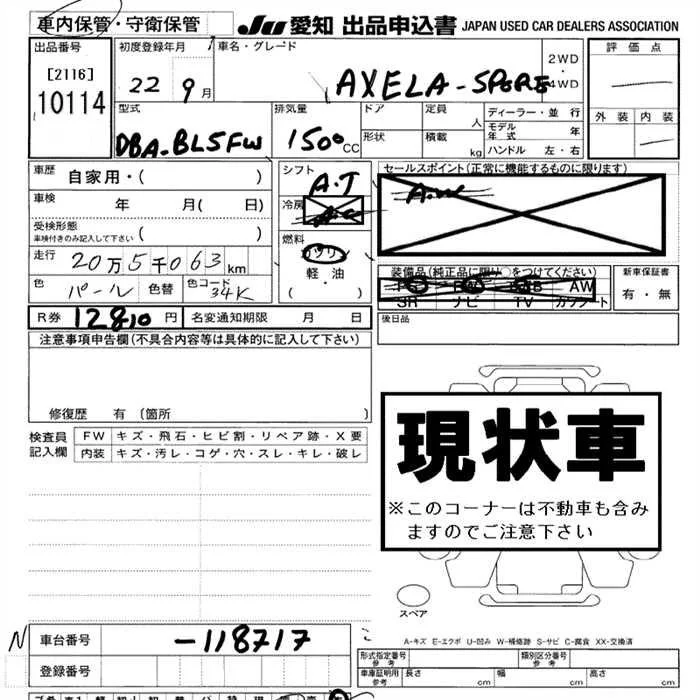 車内保管・守衛保管
JU 愛知 出品申込書 JAPAN USED CAR DEALERS ASSOCIATION
出品番号
[2116]
10114
初度登録年月
22 9月
車名・グレード
AXELA-SPORE
2WD
・
4WD
評価点
外装 内装
型式
DBA-BL5FW
排気量
1500 CC
ドア
形状
定員 人
積載 kg
ディーラー・並行
モデル年式 年
ハンドル 左・右
車歴 自家用・( )
車検 年 月( 日)
受検形態
車検付きのみ記入して下さい ( )
走行 20万5千063km
色 パール 色替 色コード 34K
シフト
A.T
冷房
燃料
ガソリン
軽・油
( ・ )
セールスポイント(正常に機能するものに限ります)
A.W
装備品(純正品に限り○をつけてください)
AW
SR ナビ TV カワシート
新車保証書
有・無
R券 12810 円 名変通知期限 月 日
後日品
注意事項申告欄(不具合内容等は具体的に記入して下さい)
修復歴 有 (箇所 )
検査員
記入欄
FW キズ・飛石・ヒビ割・リペア跡・X要
内装 キズ・汚レ・コゲ・穴・スレ・キレ・破レ
現状車
※このコーナーは不動車も含み
ますのでご注意下さい
スペア
A-キズ E-エクボ U-凹み W-補修跡 S-サビ C-腐食 XX-交換済
N 車台番号 -118717
登録番号
形式指定番号
参考
類別区分番号
参考
車庫証明用
参考
長さ cm 幅 cm 高さ cm